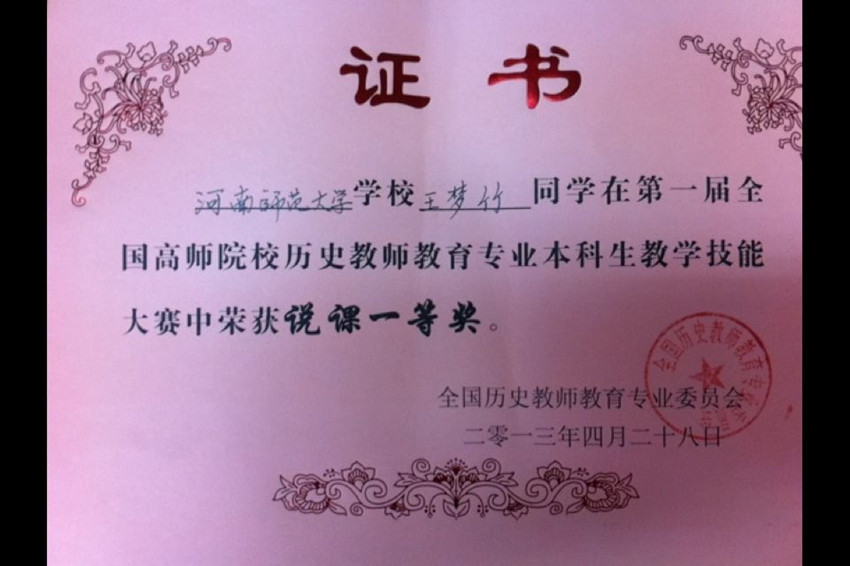 证书
河南师范大学学校王梦竹同学在第一届全
国高师院校历史教师教育专业本科生教学技能
大赛中荣获说课一等奖。
全国历史教师教育专业委员会
二零一三年四月二十八日
全国历史教师教育专业委员会